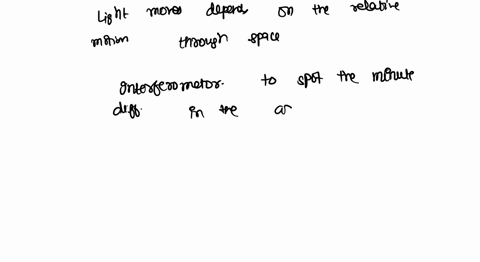 Light moves depends on the relative
motion through space
Interferometor. to spot the minute
diff. in the